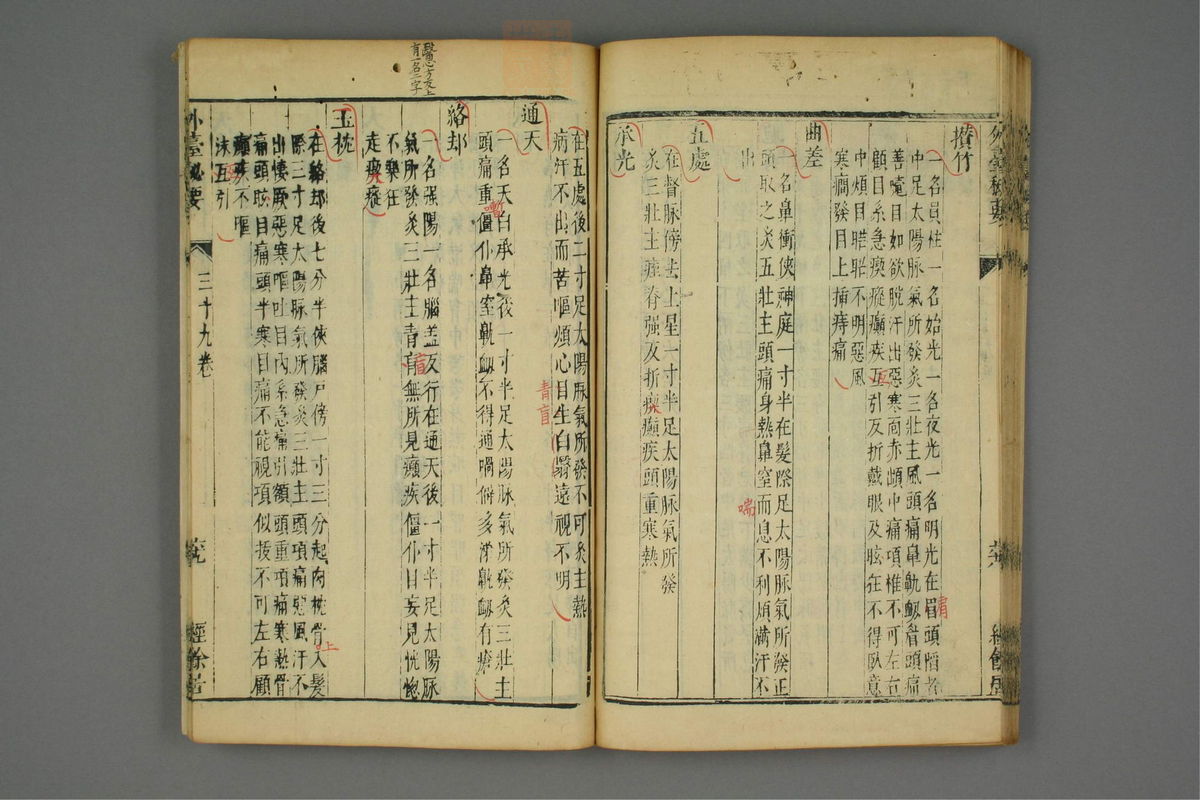 外臺秘要
攅竹
一名員柱一名始光一名夜光一名明光在眉頭陷者
中足太陽脉氣所發灸三壯主風頭痛鼻鼽衂眉頭痛
善嚏目如欲脫汗出惡寒面赤䪼中痛項椎不可左右
顧目系急瘈瘲癲疾互引反折戴眼及眩狂不得臥意
中煩目䀮䀮不明惡風
寒癇發目上插痔痛
曲差
一名鼻衝俠神庭一寸半在髮際足太陽脉氣所發正
頭取之灸五壯主頭痛身熱鼻窒而息不利煩滿汗不
出
喘
五處
在督脉傍去上星一寸半足太陽脉氣所發
灸三壯主痙脊强反折瘈瘲癲疾頭重寒熱
承光
在五處後二寸足太陽脉氣所發不可灸主熱
病汗不出而苦嘔煩心目生白翳遠視不明
青盲
通天
一名天臼承光後一寸半足太陽脉氣所發灸三壯主
頭痛重僵仆鼻窒鼽衂不得通喎僻多涕鼽衂有瘡
醫心方反上
有一名二字
絡却
一名强陽一名腦盖反行在通天後一寸半足太陽脉
氣所發灸三壯主青盲無所見癲疾僵仆目妄見恍惚
不樂狂
走瘈瘲
玉枕
在絡却後七分半俠腦戶傍一寸三分起肉枕骨入髮
際三寸足太陽脉氣所發灸三壯主頭項痛惡風汗不
出悽厥惡寒嘔吐目內系急痛引頞頭重項痛寒熱骨
痛頭眩目痛頭半寒目痛不能視項似拔不可左右顧
癲疾不嘔
沫互引
上
外臺秘要
三十九卷
經餘居